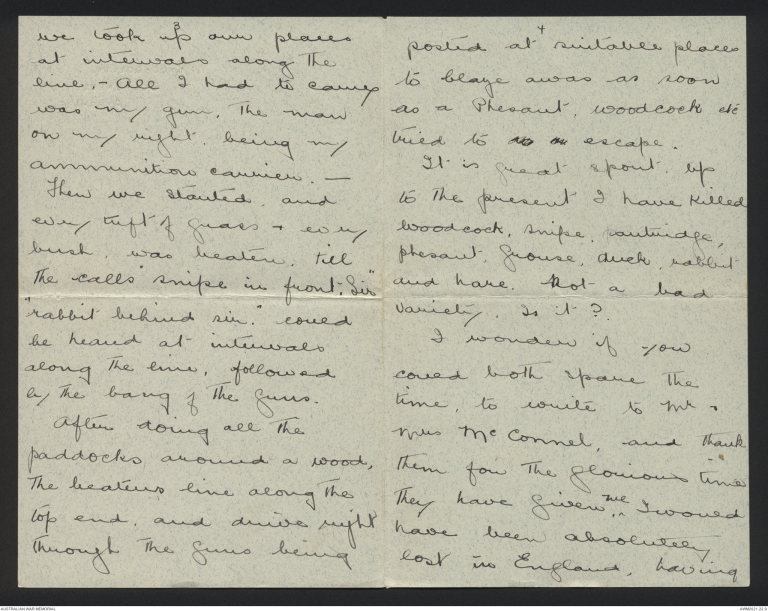 3
we took up our places
at intervals along the
line, - All I had to carry
was my gun, The man
on my right, being my
ammunition carrier. —
Then we started, and
every tuft of grass + every
bush, was beaten, till
the calls "snipe in front, Sir"
"rabbit behind sir." coued
be heard at intervals
along the line, followed
by the bang of the guns.
After doing all the
paddocks around a wood,
the beaters line along the
top end, and drive right
through the guns being
4
posted at suitable places
to blaze away as soon
as a Phesant, woodcock etc
tried to escape.
It is great sport, up
to the present I have killed
woodcock, snipe, partridge,
phesant, grouse, duck, rabbit
and hare. Not a bad
variety. Is it?
I wonder if you
coued both spare the
time, to write to Mr +
Mrs McConnel, and thank
them for the glorious time
they have given me. I woued
have been absolutely
lost in England, having
AUSTRALIAN WAR MEMORIAL